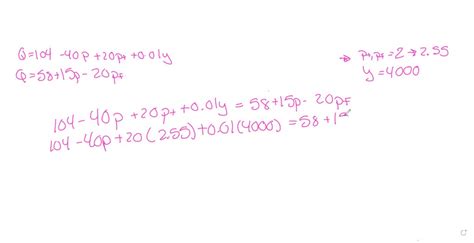 Q=104-40p+20pt+0.01y
Q=58+15p-20pf
→ pt,pf=2→2.55
y=4000
104-40p+20pt+0.01y=58+15p-20pf
104-40p+20(2.55)+0.01(4000)=58+15